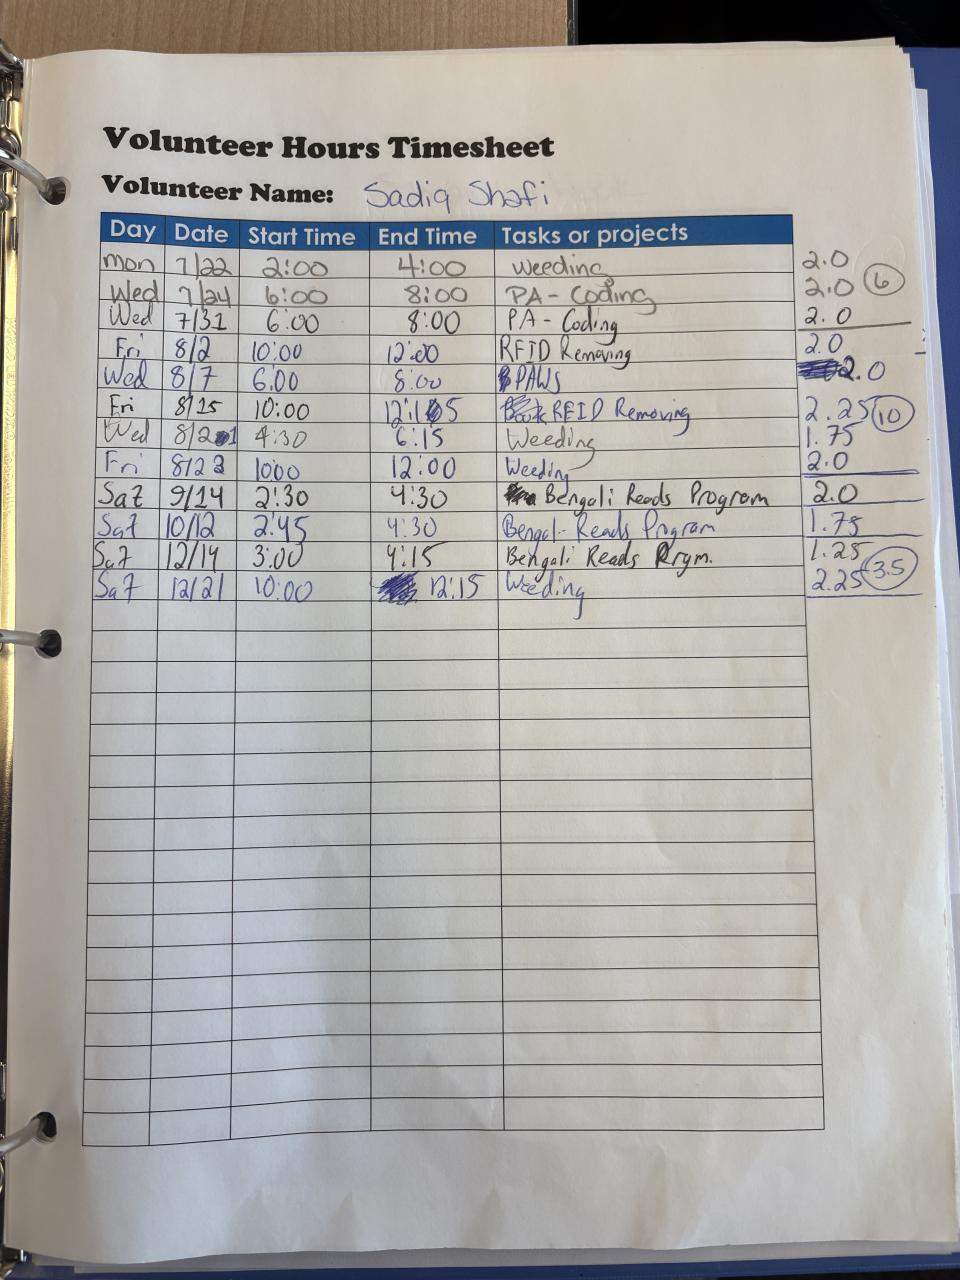 Volunteer Hours Timesheet
Volunteer Name: Sadiq Shafi
Day Date Start Time End Time Tasks or projects
Mon 7/22 2:00 4:00 Weeding 2.0
Wed 7/24 6:00 8:00 PA - Coding 2.0 6
Wed 7/31 6:00 8:00 PA - Coding 2.0
Fri 8/2 10:00 12:00 RFID Removing 2.0
Wed 8/7 6:00 8:00 PAWS 2.0
Fri 8/15 10:00 12:15 RFID Removing 2.25 10
Wed 8/21 4:30 6:15 Weeding 1.75
Fri 8/23 1000 12:00 Weeding 2.0
Sat 9/14 2:30 4:30 Bengali Reads Program 2.0
Sat 10/12 2:45 4:30 Bengali Reads Program 1.75
Sat 12/14 3:00 4:15 Bengali Reads Prgm. 1.25
Sat 12/21 10:00 12:15 Weeding 2.25 3.5